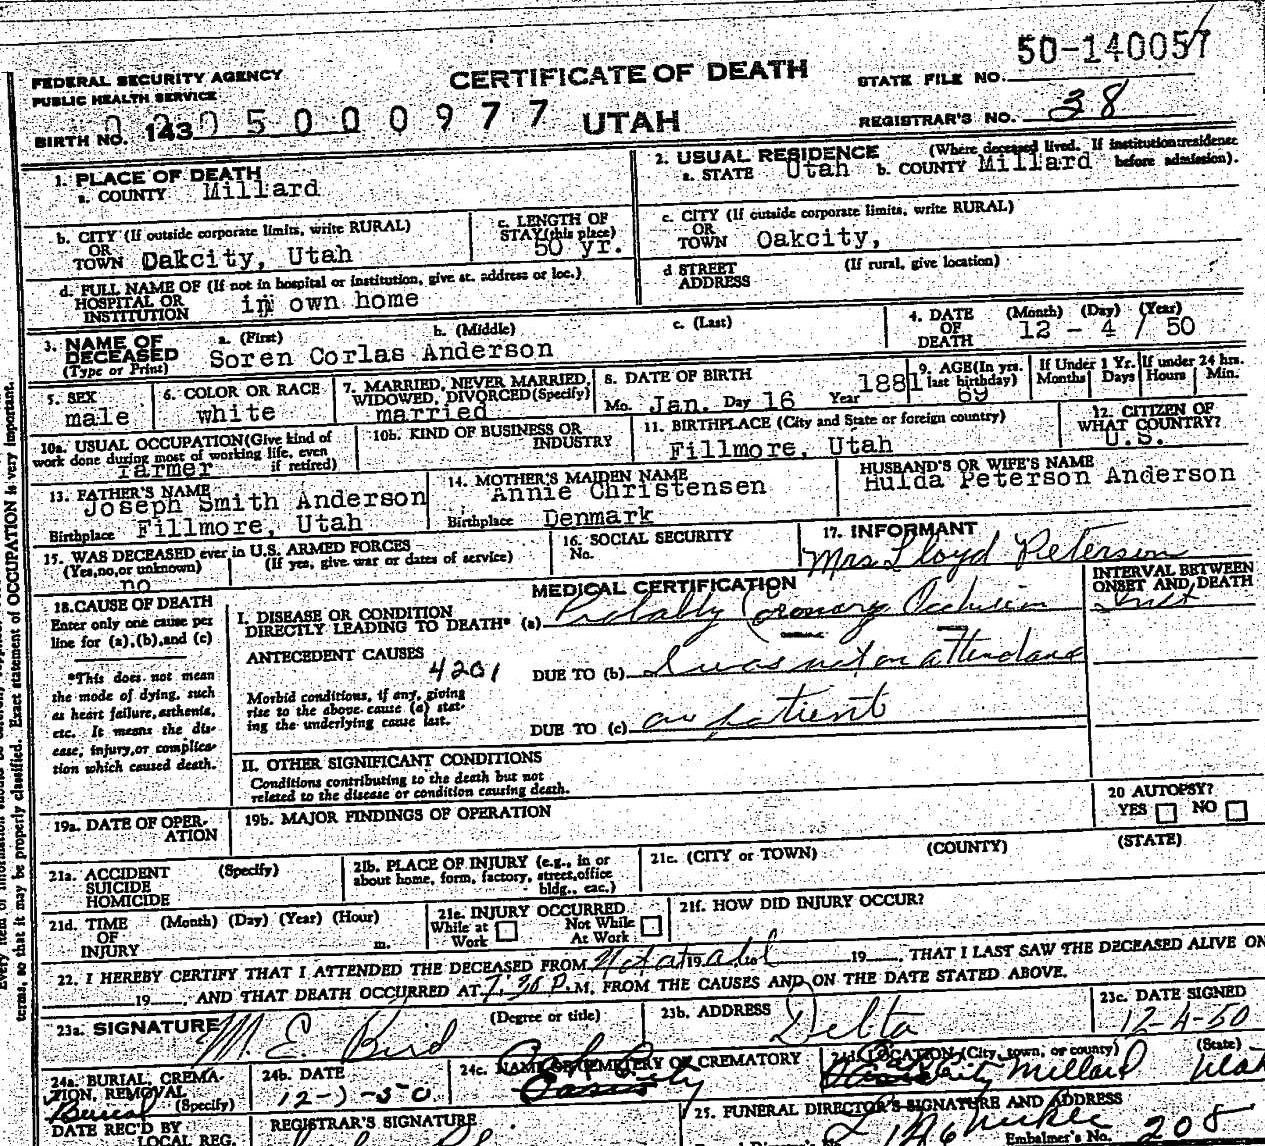 50-140057
FEDERAL SECURITY AGENCY
PUBLIC HEALTH SERVICE
CERTIFICATE OF DEATH
STATE FILE NO.
BIRTH NO. 143 5 0 0 0 9 7 7
UTAH
REGISTRAR'S NO. 38
1. PLACE OF DEATH
a. COUNTY Millard
2. USUAL RESIDENCE (Where deceased lived. If institution: residence before admission).
a. STATE Utah b. COUNTY Millard
b. CITY (If outside corporate limits, write RURAL)
OR
TOWN Oakcity, Utah
c. LENGTH OF
STAY (this place)
50 yr.
c. CITY (If outside corporate limits, write RURAL)
OR
TOWN Oakcity,
d. FULL NAME OF (If not in hospital or institution, give st. address or loc.)
HOSPITAL OR
INSTITUTION in own home
d STREET
ADDRESS (If rural, give location)
3. NAME OF
DECEASED
(Type or Print)
a. (First) b. (Middle) c. (Last)
Soren Corlas Anderson
4. DATE
OF
DEATH
(Month) (Day) (Year)
12 - 4 / 50
5. SEX
male
6. COLOR OR RACE
white
7. MARRIED, NEVER MARRIED,
WIDOWED, DIVORCED (Specify)
married
8. DATE OF BIRTH
Mo. Jan. Day 16 Year 1881
9. AGE (In yrs.
last birthday)
69
If Under 1 Yr.
Months Days
If under 24 hrs.
Hours Min.
10a. USUAL OCCUPATION (Give kind of
work done during most of working life, even
if retired)
farmer
10b. KIND OF BUSINESS OR
INDUSTRY
11. BIRTHPLACE (City and State or foreign country)
Fillmore, Utah
12. CITIZEN OF
WHAT COUNTRY?
U.S.
13. FATHER'S NAME
Joseph Smith Anderson
Birthplace Fillmore, Utah
14. MOTHER'S MAIDEN NAME
Annie Christensen
Birthplace Denmark
HUSBAND'S OR WIFE'S NAME
Hulda Peterson Anderson
15. WAS DECEASED ever in U.S. ARMED FORCES
(Yes, no, or unknown) (If yes, give war or dates of service)
no
16. SOCIAL SECURITY
No.
17. INFORMANT
Mrs Lloyd Peterson
18. CAUSE OF DEATH
Enter only one cause per
line for (a), (b), and (c)
*This does not mean
the mode of dying, such
as heart failure, asthenia,
etc. It means the dis-
ease, injury, or complica-
tion which caused death.
MEDICAL CERTIFICATION
INTERVAL BETWEEN
ONSET AND DEATH
I. DISEASE OR CONDITION
DIRECTLY LEADING TO DEATH* (a) Probably Coronary Occlusion
ANTECEDENT CAUSES
4201
DUE TO (b) I was not in attendance
Morbid conditions, if any, giving
rise to the above cause (a) stat-
ing the underlying cause last.
DUE TO (c) on patient
II. OTHER SIGNIFICANT CONDITIONS
Conditions contributing to the death but not
related to the disease or condition causing death.
19a. DATE OF OPER-
ATION
19b. MAJOR FINDINGS OF OPERATION
20 AUTOPSY?
YES NO
21a. ACCIDENT (Specify)
SUICIDE
HOMICIDE
21b. PLACE OF INJURY (e.g., in or
about home, form, factory, street, office
bldg., eac.)
21c. (CITY or TOWN) (COUNTY) (STATE)
21d. TIME (Month) (Day) (Year) (Hour)
OF
INJURY m.
21e. INJURY OCCURRED
While at Work Not While At Work
21f. HOW DID INJURY OCCUR?
22. I HEREBY CERTIFY THAT I ATTENDED THE DECEASED FROM Not at all 19 , to 19 , THAT I LAST SAW THE DECEASED ALIVE ON
19 , AND THAT DEATH OCCURRED AT 7:30 P.M. FROM THE CAUSES AND ON THE DATE STATED ABOVE.
23a. SIGNATURE (Degree or title)
M. E. Bird
23b. ADDRESS
Delta
23c. DATE SIGNED
12-4-50
24a. BURIAL, CREMA-
TION, REMOVAL
(Specify)
Burial
24b. DATE
24c. NAME OF CEMETERY OR CREMATORY
Oak City
24d. LOCATION (City, town, or county) (State)
Millard Utah
DATE REC'D BY
LOCAL REG.
REGISTRAR'S SIGNATURE
25. FUNERAL DIRECTOR'S SIGNATURE AND ADDRESS
Embalmer's No. 208
Every item of information should be
terms, so that it may be properly classified. Exact statement of OCCUPATION is very important.